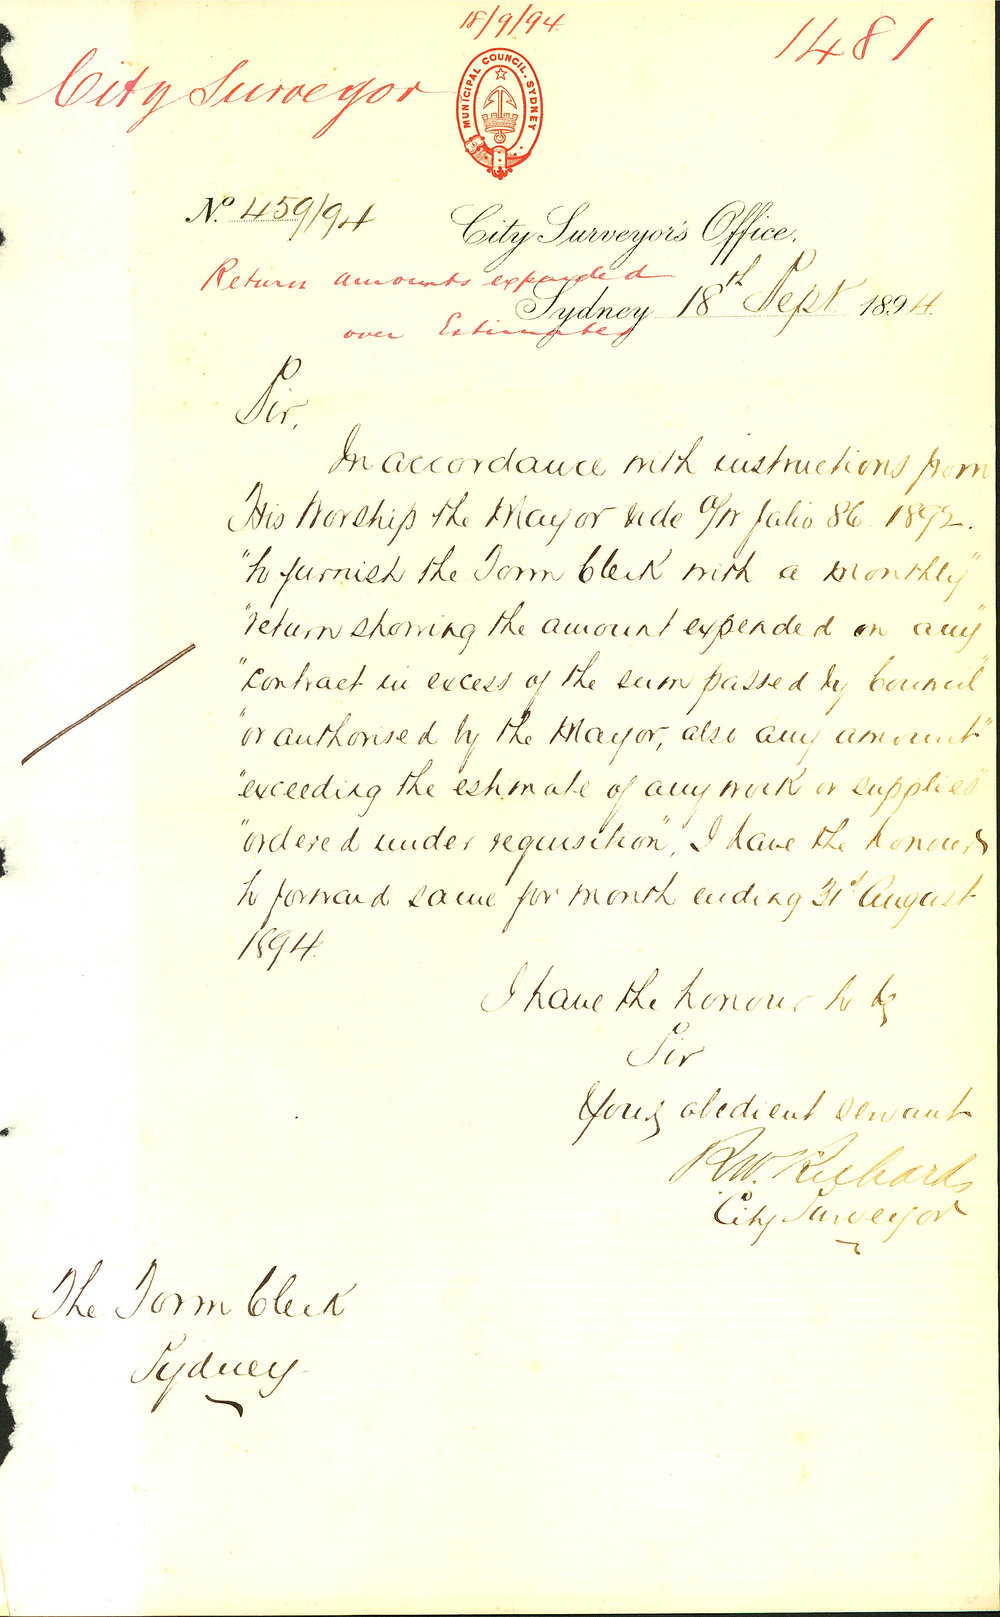 18/9/94
1481
City Surveyor
MUNICIPAL COUNCIL. SYDNEY
No. 459/94
City Surveyor's Office.
Return amounts expended
Sydney 18th Sept 1894
over Estimates
Sir,
In accordance with instructions from
His Worship the Mayor vide O/W folio 86. 1892.
"to furnish the Town Clerk with a monthly"
"return showing the amount expended on any"
"contract in excess of the sum passed by Council"
"or authorised by the Mayor, also any amount"
"exceeding the estimate of any work or supplies"
"ordered under requisition", I have the honour
to forward same for month ending 31st August
1894.
I have the honour to be
Sir
Your obedient servant
R.W. Richards
City Surveyor
The Town Clerk
Sydney